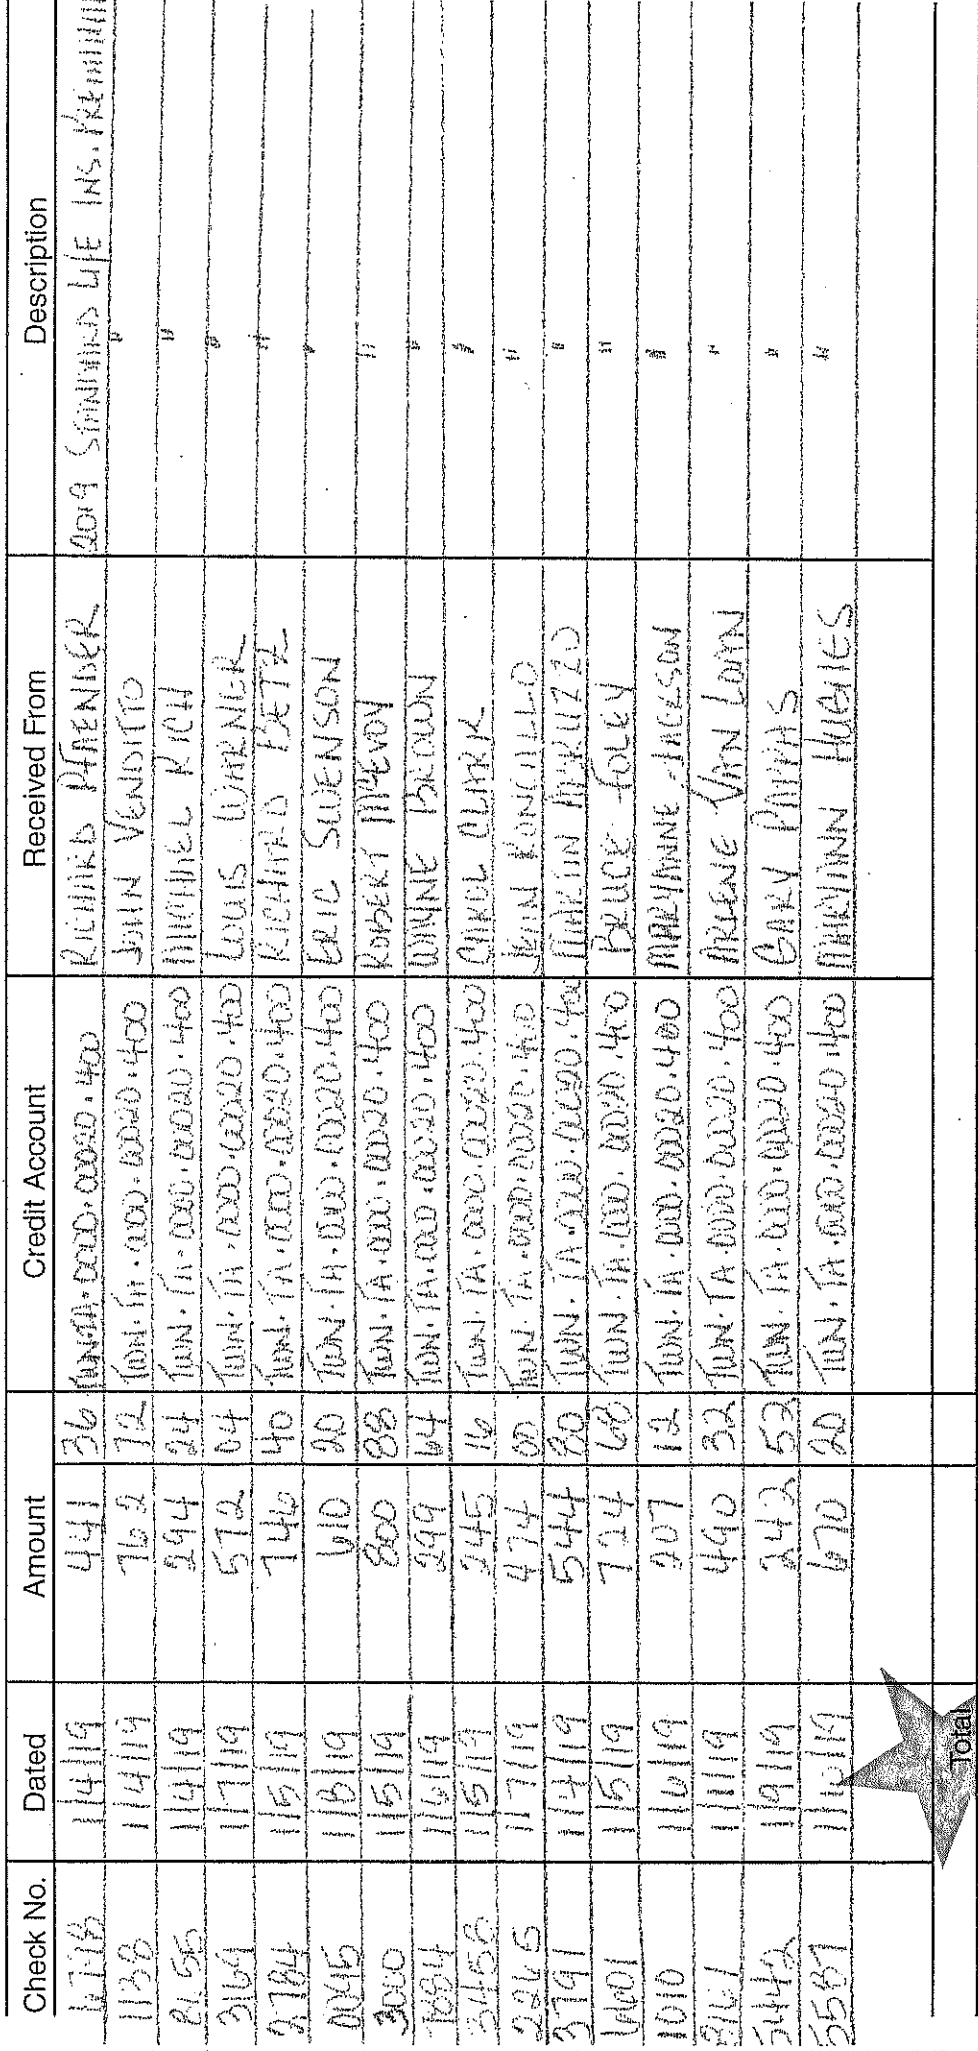 Check No. Dated Amount Credit Account Received From Description
6778 1/4/19 441 36 TWN.TA.0000.00020.400 RICHARD PFAENDER 2019 STANDARD LIFE INS. PREMIUM
1138 1/4/19 762 72 TWN.TA.0000.00020.400 JOHN VENDITTO "
8255 1/4/19 294 24 TWN.TA.0000.00020.400 MICHAEL RICH "
3169 1/7/19 572 04 TWN.TA.0000.00020.400 LOUIS WARNER "
2784 1/5/19 746 40 TWN.TA.0000.00020.400 RICHARD BETZ "
1/8/19 610 20 TWN.TA.0000.00020.400 ERIC SWENSON "
3060 1/5/19 800 88 TWN.TA.0000.00020.400 ROBERT McEVOY "
7884 1/6/19 299 64 TWN.TA.0000.00020.400 WAYNE BROWN "
3458 1/5/19 245 16 TWN.TA.0000.00020.400 CAROL CLARK "
2265 1/7/19 474 00 TWN.TA.0000.00020.400 RONCILLO "
3791 1/4/19 544 80 TWN.TA.0000.00020.400 MARTIN "
6601 1/5/19 724 68 TWN.TA.0000.00020.400 BRUCE FOLEY "
1010 1/6/19 207 12 TWN.TA.0000.00020.400 MARYANNE JACESON "
3161 490 32 TWN.TA.0000.00020.400 ARLENE VAN LOAN "
5442 1/9/19 242 52 TWN.TA.0000.00020.400 GARY PAPPAS "
5587 1/10/19 670 20 TWN.TA.0000.00020.400 MARYANN HUGHES "
Total